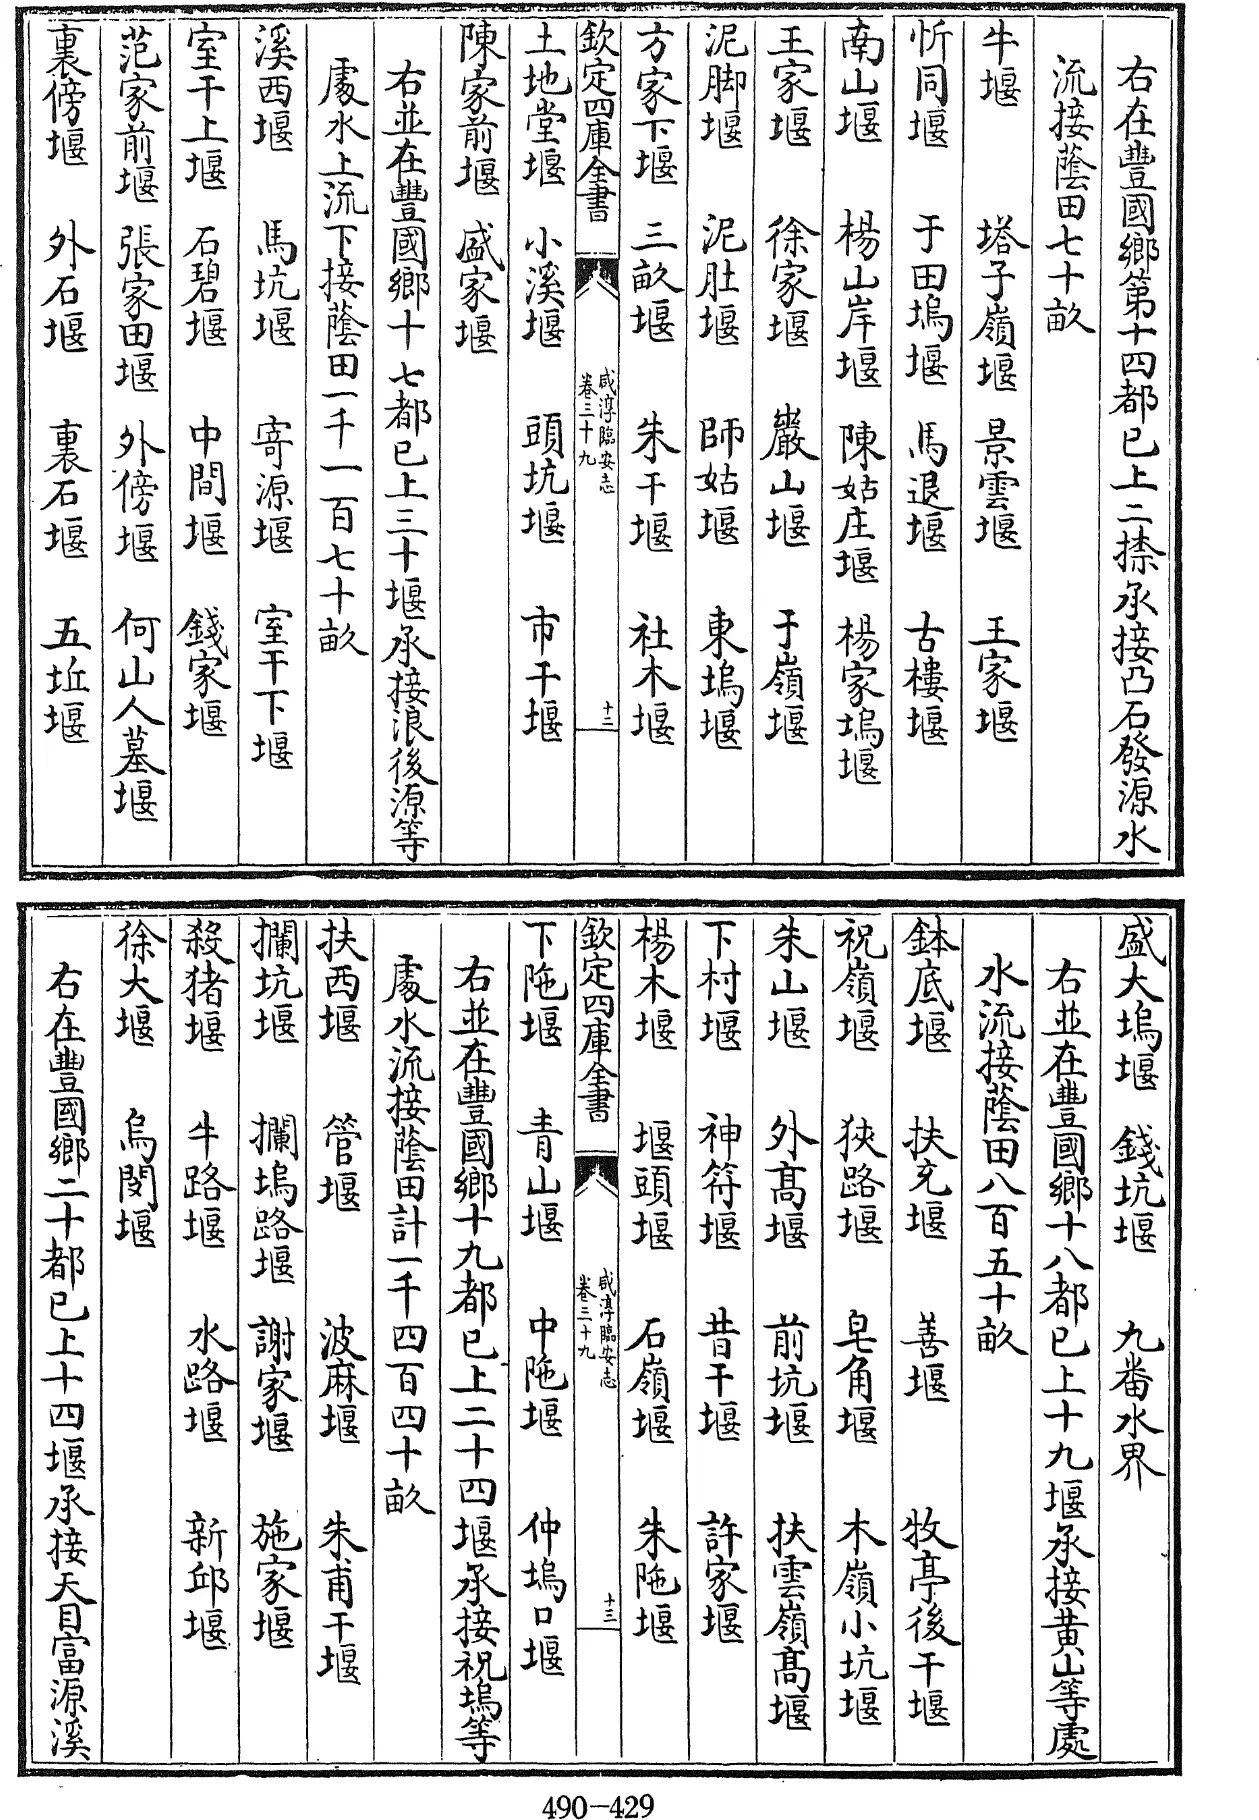 右在豐國鄉第十四都已上二捺承接凸石發源水
流接蔭田七十畝
牛堰 塔子嶺堰 景雲堰 王家堰
忻同堰 于田塢堰 馬退堰 古樓堰
南山堰 楊山岸堰 陳姑庄堰 楊家塢堰
王家堰 徐家堰 巖山堰 于嶺堰
泥脚堰 泥肚堰 師姑堰 東塢堰
方家下堰 三畝堰 朱干堰 社木堰
欽定四庫全書 咸淳臨安志 卷三十九 十二
土地堂堰 小溪堰 頭坑堰 市干堰
陳家前堰 盛家堰
右並在豐國鄉十七都已上三十堰承接浪後源等
處水上流下接蔭田一千一百七十畝
溪西堰 馬坑堰 寄源堰 室干下堰
室干上堰 石碧堰 中間堰 錢家堰
范家前堰 張家田堰 外傍堰 何山人墓堰
裏傍堰 外石堰 裏石堰 五坵堰
盛大塢堰 錢坑堰 九番水界
右並在豐國鄉十八都已上十九堰承接黄山等處
水流接蔭田八百五十畝
鉢底堰 扶充堰 善堰 牧亭後干堰
祝嶺堰 狹路堰 皂角堰 木嶺小坑堰
朱山堰 外高堰 前坑堰 扶雲嶺高堰
下村堰 神符堰 昔干堰 許家堰
楊木堰 堰頭堰 石嶺堰 朱陁堰
欽定四庫全書 咸淳臨安志 卷三十九 十三
下陁堰 青山堰 中陁堰 仲塢口堰
右並在豐國鄉十九都已上二十四堰承接祝塢等
處水流接蔭田計一千四百四十畝
扶西堰 管堰 波麻堰 朱甫干堰
攔坑堰 攔塢路堰 謝家堰 施家堰
殺猪堰 牛路堰 水路堰 新邱堰
徐大堰 烏閔堰
右在豐國鄉二十都已上十四堰承接天目富源溪
490-429